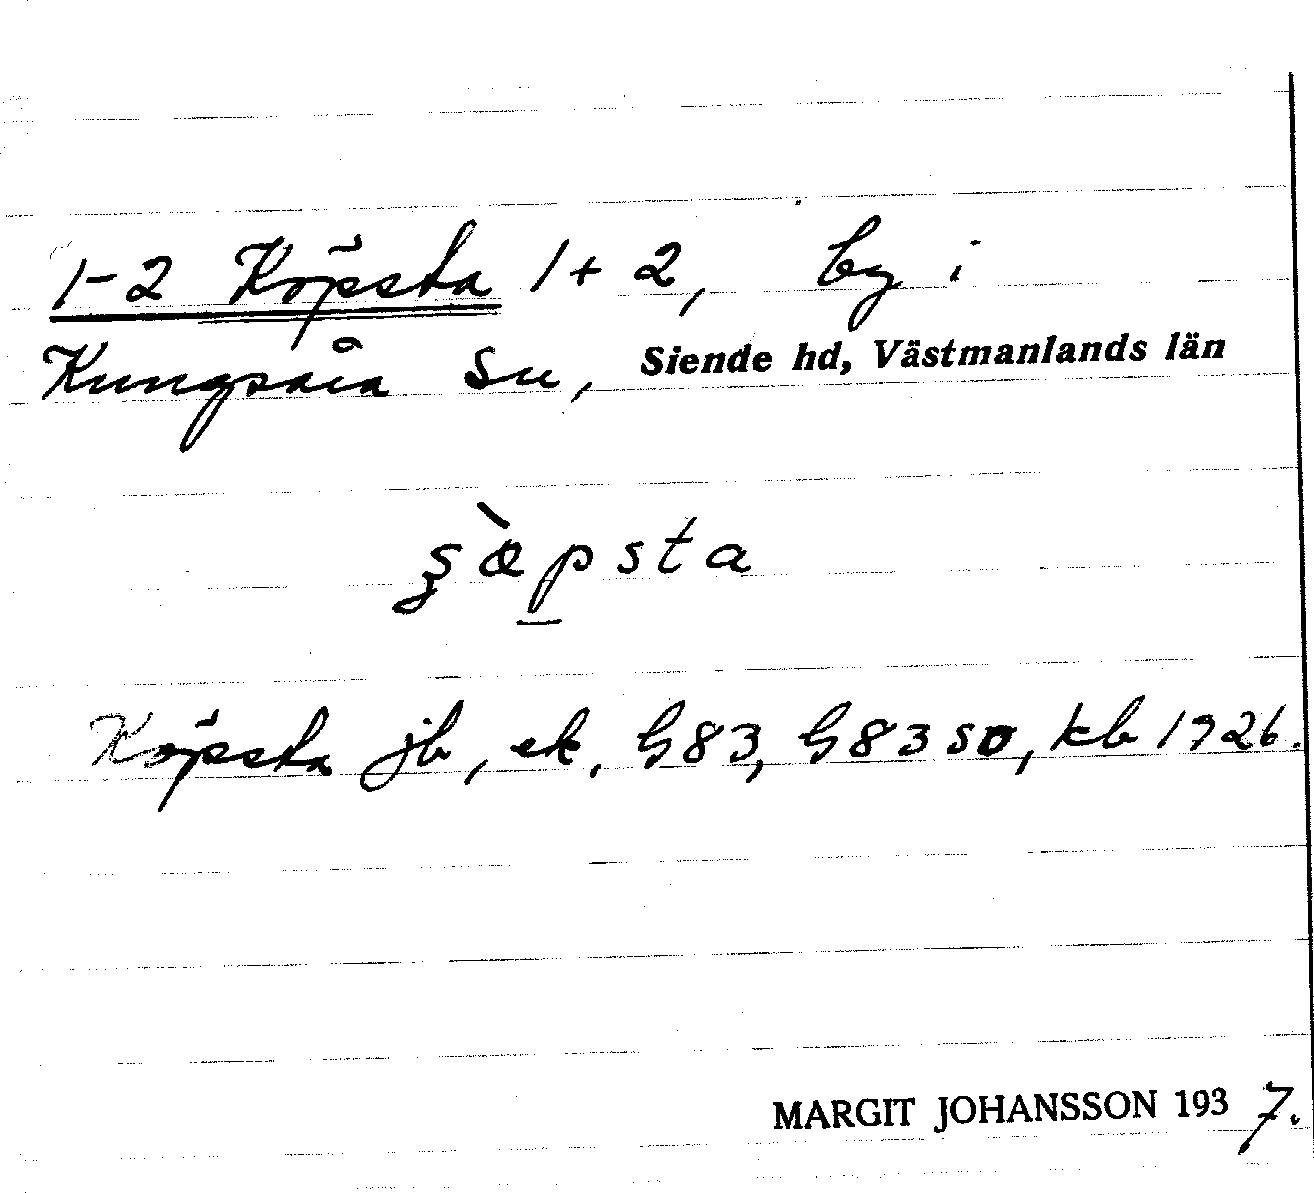 1-2 Köpsta 1+2, by i
Kungsåra sn, Siende hd, Västmanlands län
ʂœ̀psta
Köpsta jb, ek, G83, G83 SO, kb 1926.
MARGIT JOHANSSON 1937.